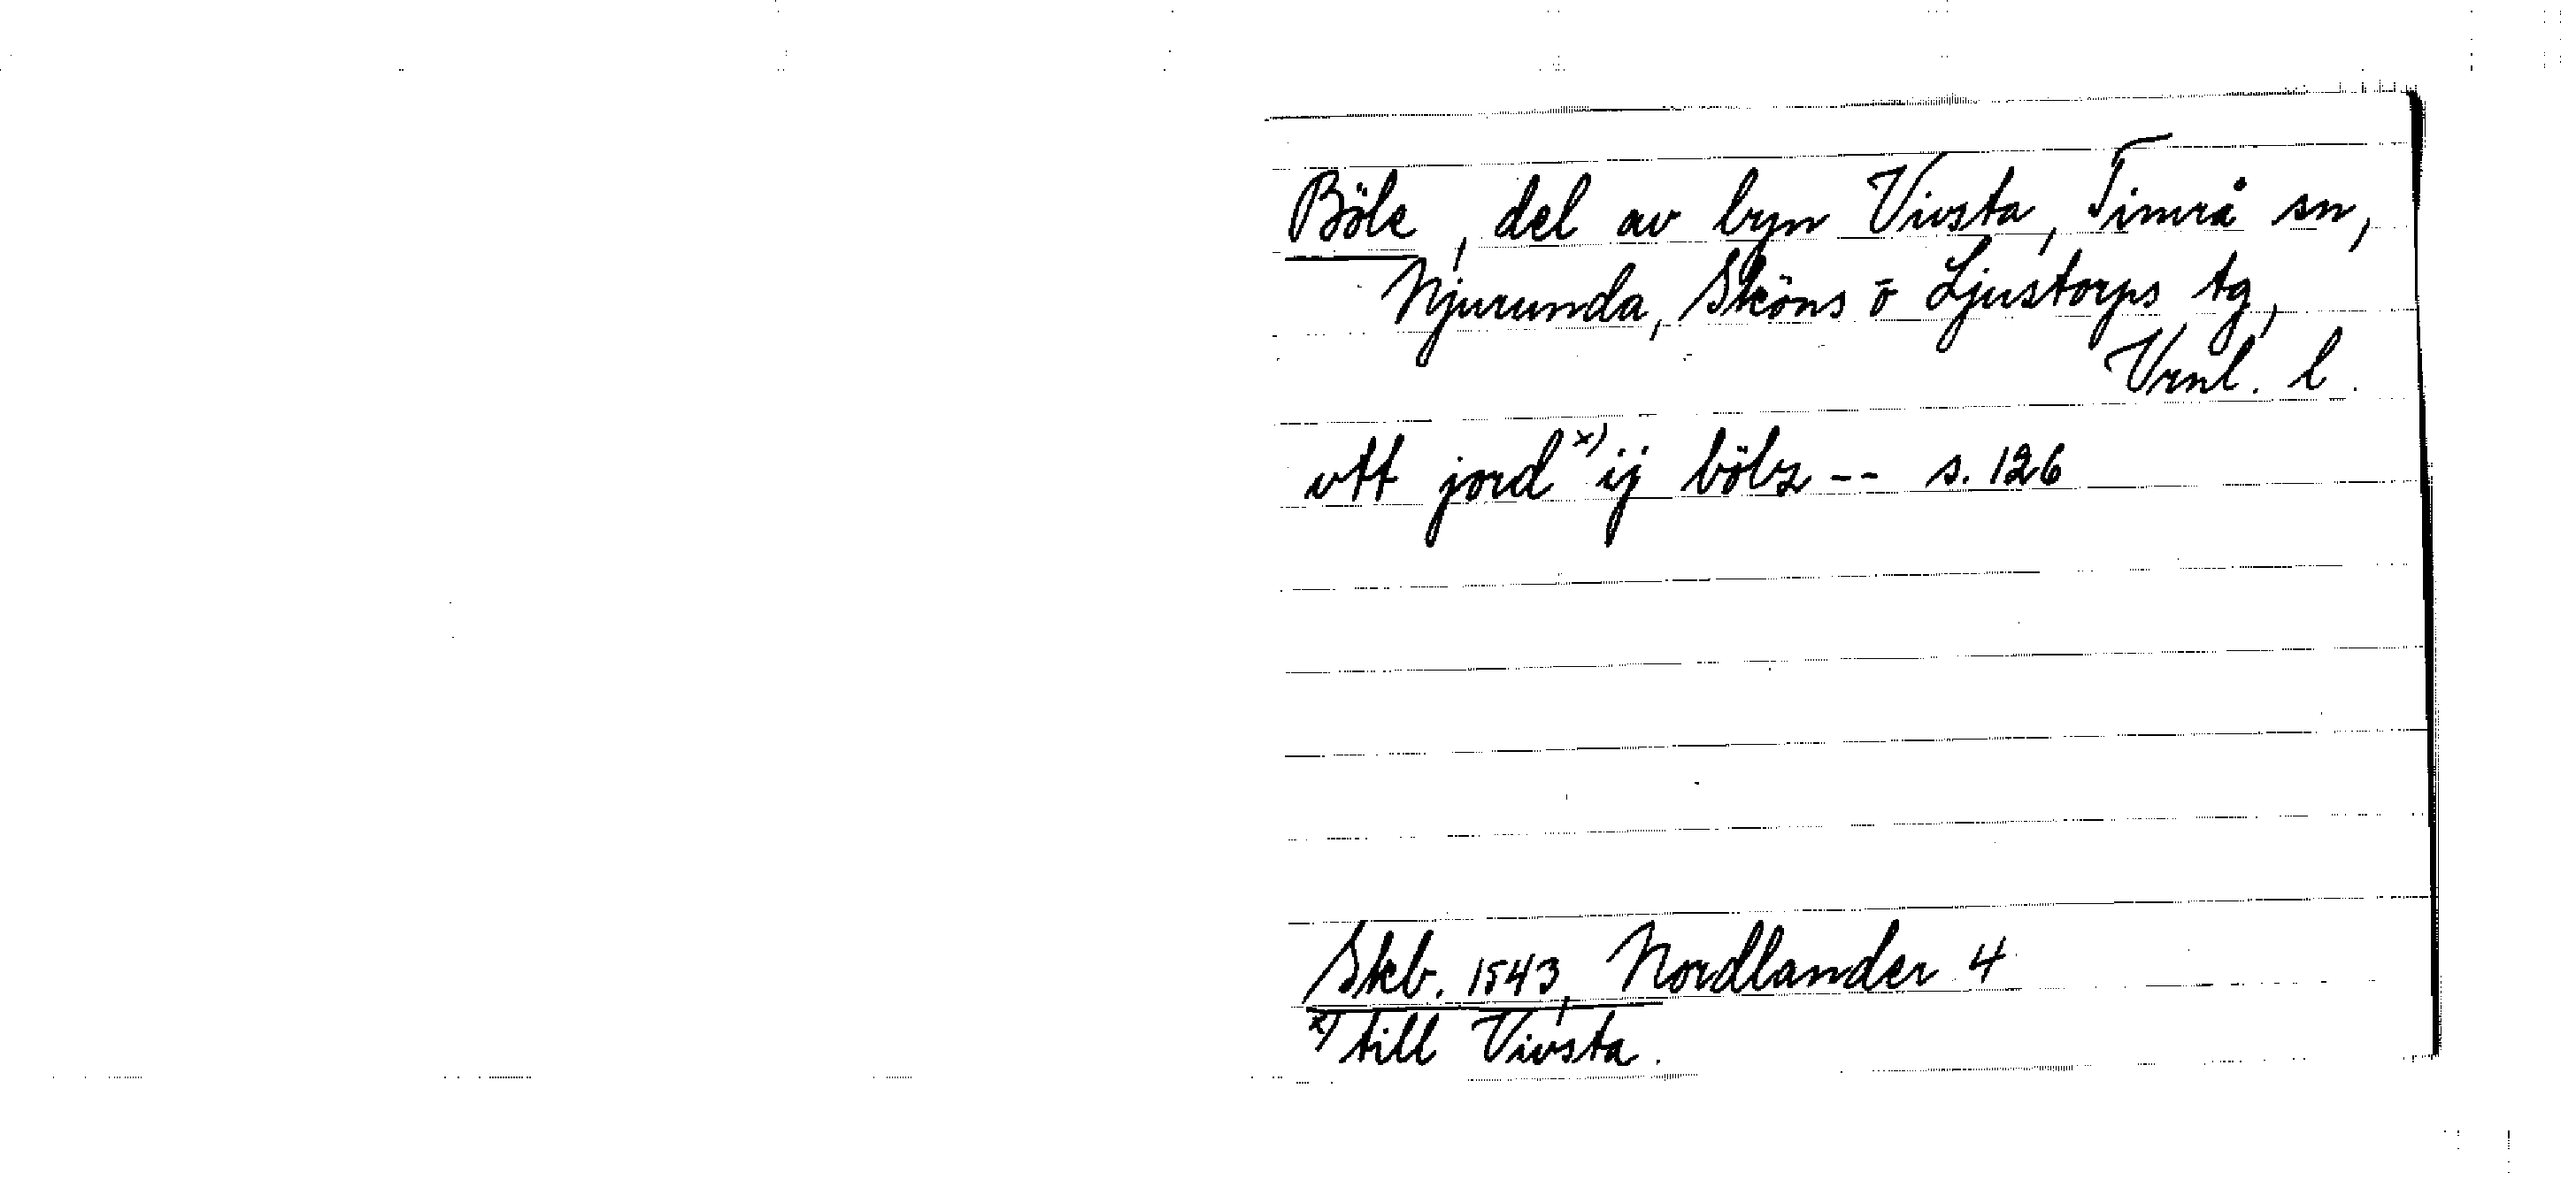 Böle, del av byn Vivsta, Timrå sn,
Njurunda, Sköns o Ljustorps tg,
Vrnl. l.
vtt jord x) ij bölz -- s. 126
Skb. 1543, Nordlander 4
x) till Vivsta.